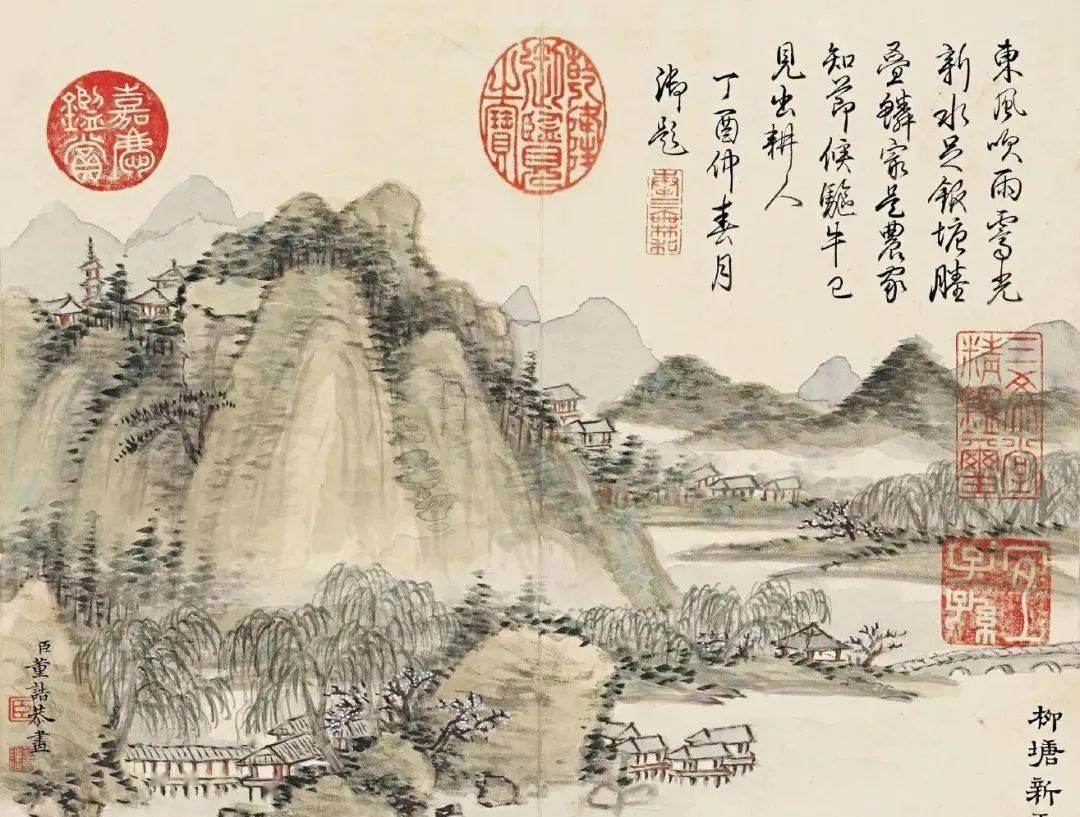 東風吹雨霽光
新水足銀塘塍
疊鱗家是農家
知節候驅牛已
見出耕人
丁酉仲春月
御題
乾隆御覽之寶
嘉慶鑑賞
三希堂精鑑璽
宜子孫
柳塘新
臣董誥恭畫
臣